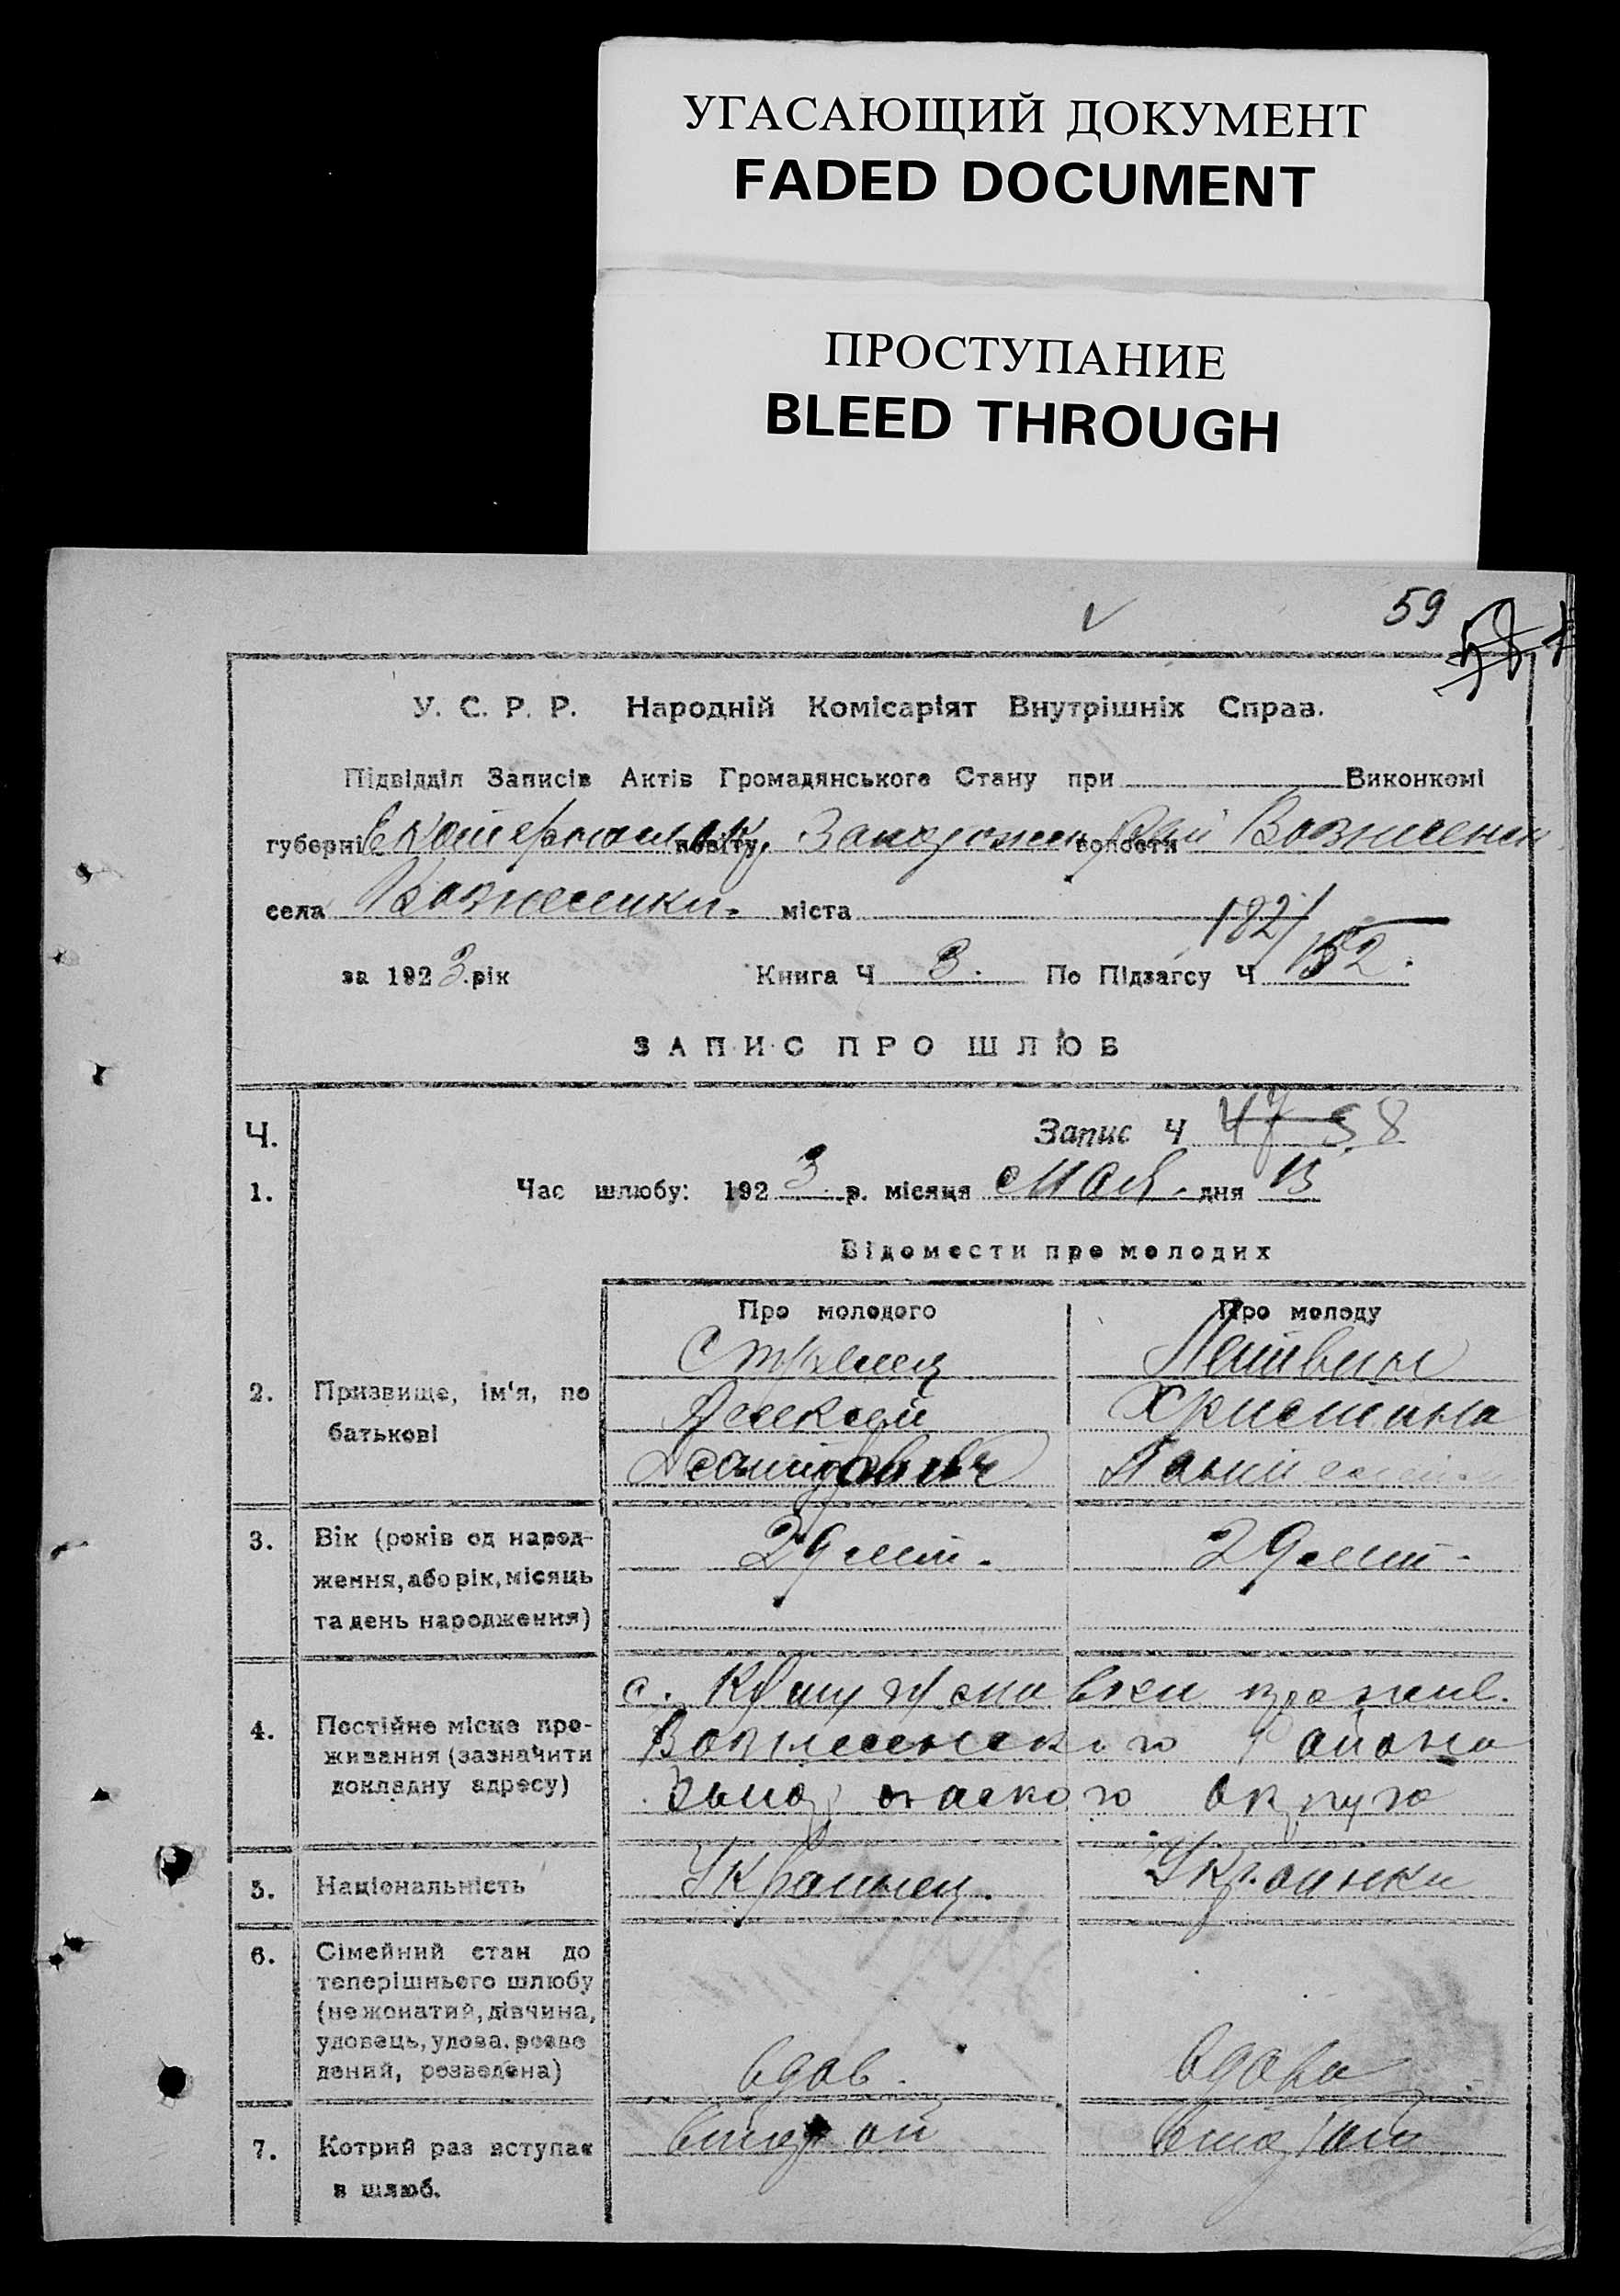 УГАСАЮЩИЙ ДОКУМЕНТ
FADED DOCUMENT
ПРОСТУПАНИЕ
BLEED THROUGH
59
У. С. Р. Р. Народній Комісаріят Внутрішніх Справ.
Підвідділ Записів Актів Громадянського Стану при Виконкомі
губерні повіту волости
села Вознесенки. міста
182/
за 1923 рік Книга Ч 3. По Підзагсу Ч 152.
ЗАПИС ПРО ШЛЮБ
Ч. Запис Ч 47 58
1. Час шлюбу: 1923 р. місяця Мая. дня 13
Відомости про молодих
Про молодого Про молоду
Стрелец Литвин
2. Призвище, ім'я, по Алексей Христина
батькові
3. Вік (років од народ- 29 лет. 29 лет.
ження, або рік, місяць
та день народження)
с.
4. Постійне місце про- Вознесенского Района
живання (зазначити
докладну адресу) округа
5. Національність Украинец. Украинка
6. Сімейний стан до
теперішнього шлюбу
(не жонатий, дівчина,
удовець, удова. розве
дений, розведена) вдов. вдова
7. Котрий раз вступає второй второй
в шлюб.